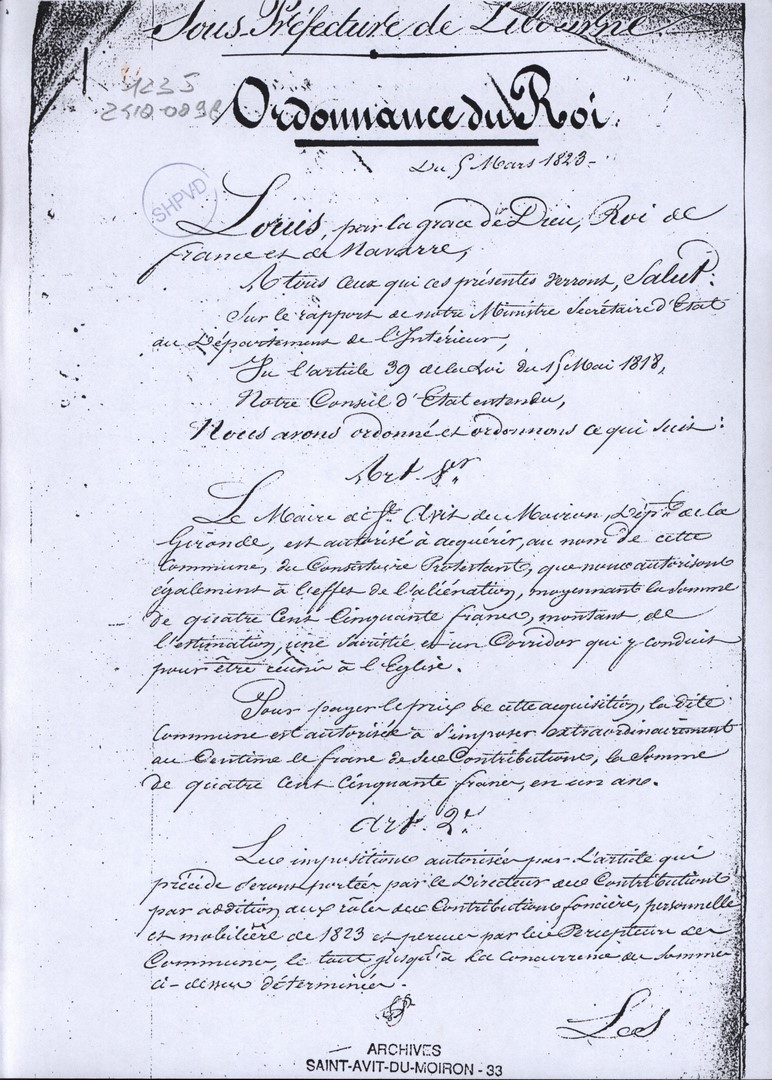 Sous-Préfecture de Libourne.
Ordonnance du Roi.
Du 5 Mars 1823-
SHPVD
Louis, par la grace de Dieu, Roi de
france et de Navarre,
A tous ceux qui ces présentes verront, Salut:
Sur le rapport de notre Ministre Secrétaire d'Etat
au Département de l'Intérieur,
Vu l'article 39 de la Loi du 15 Mai 1818,
Notre Conseil d'Etat entendu,
Nous avons ordonné et ordonnons ce qui suit:
Art. 1er
Le Maire de St. Avit du Moiron, Dépnt. de la
Gironde, est autorisé à acquérir, au nom de cette
Commune, du Consistoire Protestant, que nous autorisons
également à l'effet de l'aliénation, moyennant la somme
de quatre Cent Cinquante francs, montant de
l'estimation, une Sacristie et un Corridor qui y conduit
pour être réunis à l'Eglise.
Pour payer le prix de cette acquisition, la dite
Commune est autorisée à s'imposer extraordinairement
au Centime le franc de ses Contributions, la Somme
de quatre Cent Cinquante francs, en un an.
Art. 2.
Les impositions autorisées par l'article qui
précède seront portées par le Directeur des Contributions
par addition aux rôles des Contributions foncière, personnelle
et mobilière de 1823 et perçues par les Percepteurs des
Communes, le tout jusqu'à la concurrence des sommes
ci-dessus déterminées.
Les
ARCHIVES
SAINT-AVIT-DU-MOIRON - 33